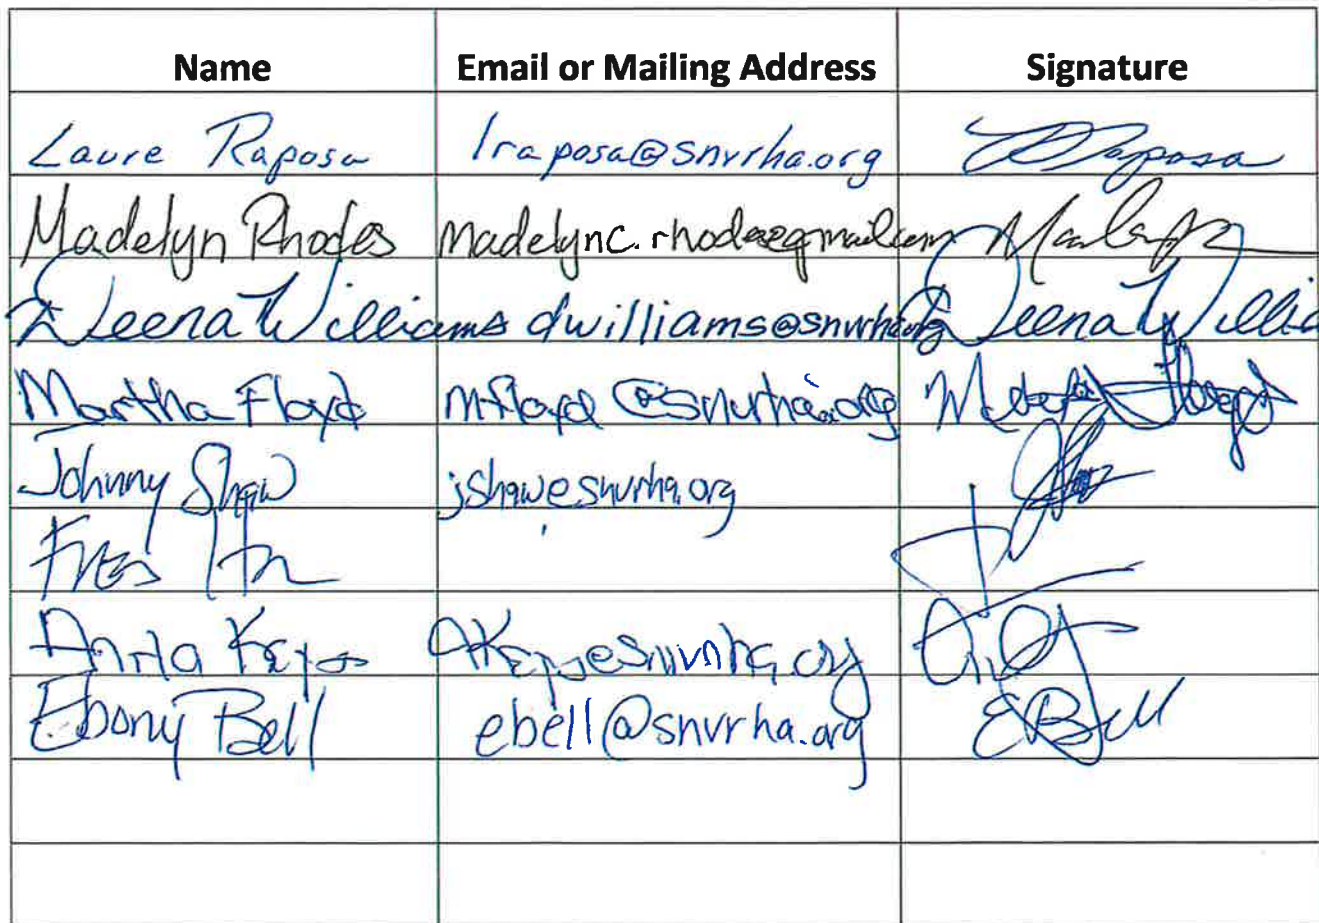 Name Email or Mailing Address Signature
Laure Raposa lraposa@snvrha.org Raposa
Madelyn Rhodes madelync.rhodes@gmail.com
Deena Williams dwilliams@snvrha.org Deena Willia
Martha Floyd mfloyd@snvrha.org Martha Floyd
Johnny Shaw jshaw@snvrha.org
Anita @snvrha.org
Ebony Bell ebell@snvrha.org EBell